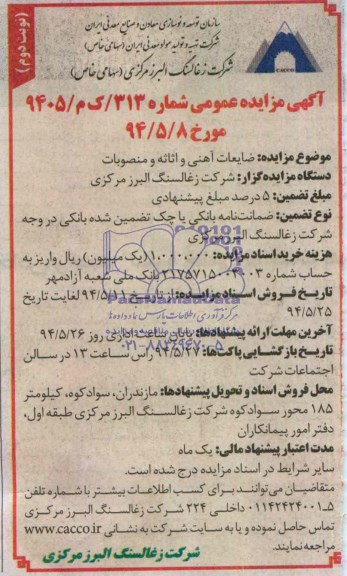 سازمان توسعه و نوسازی معادن و صنایع معدنی ایران
شرکت تهیه و تولید مواد معدنی ایران (سهامی خاص)
شرکت زغالسنگ البرز مرکزی (سهامی خاص)
(نوبت دوم)
CACCO
آگهی مزایده عمومی شماره ۳۱۳/ک م/۹۴۰۵
مورخ ۹۴/۵/۸
موضوع مزایده: ضایعات آهنی و اثاثه و منصوبات
دستگاه مزایده‌گزار: شرکت زغالسنگ البرز مرکزی
مبلغ تضمین: ۵ درصد مبلغ پیشنهادی
نوع تضمین: ضمانت‌نامه بانکی یا چک تضمین شده بانکی در وجه
شرکت زغالسنگ البرز مرکزی
هزینه خرید اسناد مزایده: ۱.۰۰۰.۰۰۰ (یک میلیون) ریال واریز به
حساب شماره بانک ملی شعبه آزادمهر
تاریخ فروش اسناد مزایده: از تاریخ لغایت تاریخ
۹۴/۵/۲۵
آخرین مهلت ارائه پیشنهادها: پایان ساعت اداری روز ۹۴/۵/۲۶
تاریخ بازگشایی پاکت‌ها: ۹۴/۵/۲۷ راس ساعت ۱۳ در سالن
اجتماعات شرکت
محل فروش اسناد و تحویل پیشنهادها: مازندران، سوادکوه، کیلومتر
۱۸۵ محور سوادکوه شرکت زغالسنگ البرز مرکزی طبقه اول،
دفتر امور پیمانکاران
مدت اعتبار پیشنهاد مالی: یک ماه
سایر شرایط در اسناد مزایده درج شده است.
متقاضیان می‌توانند برای کسب اطلاعات بیشتر با شماره تلفن
۵-۰۱۱۴۲۴۲۴۰۰۱ داخلی ۲۲۴ شرکت زغالسنگ البرز مرکزی
تماس حاصل نموده و یا به سایت شرکت به نشانی www.cacco.ir
مراجعه نمایند.
شرکت زغالسنگ البرز مرکزی